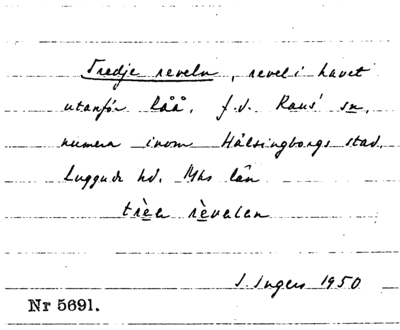 Tredje reveln, revel i havet
utanför Råå, f.d. Raus sn,
numera inom Hälsingborgs stad.
Luggude hd. Mhs län
trèe rèvelen
I. Ingers 1950
Nr 5691.